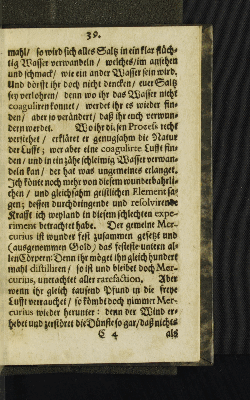 39.
mahl/ so wird sich alles Saltz in ein klar flüch-
tig Wasser verwandeln / welches/im ansehen
und schmack/ wie ein ander Wasser sein wird.
Und dörfft ihr doch nicht dencken/ euer Saltz
sey verlohren/ denn wo ihr das Wasser nicht
coaguliren konnet/ werdet ihr es wieder fin-
den/ aber so verändert/ daß ihr euch verwun-
dern werdet. Wo ihr disen Process recht
verstehet/ erkläret er genugsahm die Natur
der Lufft; wer aber eine coagulirte Lufft fin-
den/ und in ein zähe schleimig Wasser verwan-
deln kan/ der hat was ungemeines erlanget.
Ich könte noch mehr von diesem wunderbahrli-
chen / und gleichsahm geistlichen Element sa-
gen; dessen durchdringende und resolvirende
Krafft ich weyland in diesem schlechten expe-
riment betrachtet habe. Der gemeine Mer-
curius ist wunder fest zusammen gesetzt und
(ausgenommen Gold) das festeste untern al-
len Cörpern: Denn ihr möget ihn gleich hundert
mahl distilliren/ so ist und bleibet doch Mer-
curius, unerachtet aller rarefaction. Aber
wenn ihr gleich tausend Pfund in die freye
Lufft verrauchet/ so kömbt doch nimmer Mer-
curius wieder herunter: denn der Wind er-
hebet und zerstöret die Dünste so gar/ daß nichts
C 4 als